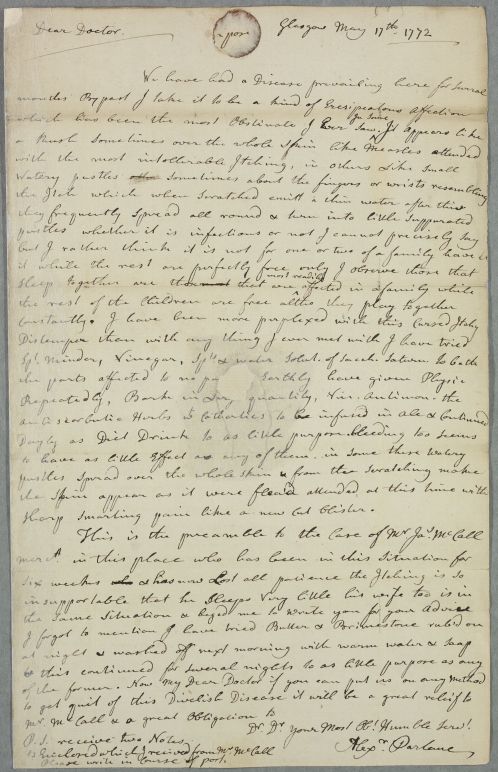 Dear Doctor.
Glasgow May 17th 1772
We have had a Disease prevailing here for several
months By past I take it to be a kind of Erisipealous Affection
which has been the most Obstinate I Ever saw. In some
It appears like
a Rush sometimes over the whole skin like Measles attended
with the most intollerable Itching, in others Like small
Watery pustles sometimes about the fingers or wrists resembling
the Itch which when scratched emitt a thin water after this
they frequently spread all round & turn into little suppurated
pustles whether it is infectious or not I cannot precisely say
but I rather think it is not for one or two of a family have
it while the rest are perfectly free only I observe those that
sleep together are most readily that are affected in a family while
the rest of the Children are free altho they play together
Constantly. I have been more perplexed with this Cursed Itchy
Distemper than with any thing I ever met with I have tried
Spt. Minder, Vinegar, Spts & water Solut. of Sacch. Saturn to bath
the parts affected to no have given Physic
Repeatedly, Bark in quantity, Vin. Antimon. the
antiscorbutic Herbs & Catharticks to be infused in ale & Continued
Dayly as Diet Drink to as little purpose. bleeding too seems
to have as little Effect as any of them. in some these Watery
pustles spread over the whole skin & from the scratching make
the skin appear as it were flead attended at this time with
sharp smarting pain like a new Cut Blister.
This is the preamble to the Case of Mr Jas. McCall
mercht. in this place who has been in this situation for
six weeks & has now Lost all patience the Itching is so
insupportable that he sleeps Very little his wife too is in
the same situation & beged me to write you for your Advice
I forgot to mention I have tried Butter & Brimestone rub'd on
at night & washed off next morning with warm water & soap
& this continued for several nights to as little purpose as any
of the former. Now My Dear Doctor if you can put us on any method
to get quit of this Divelish Disease it will be a great relief to
Mr. McCall & a great Obligation to
Dr. Dr. your Most Obt. Humble Servt.
Alexr. Parlane
P.S. receive two Notes
Enclosed which I received from Mr. McCall
Please write in Course of post.